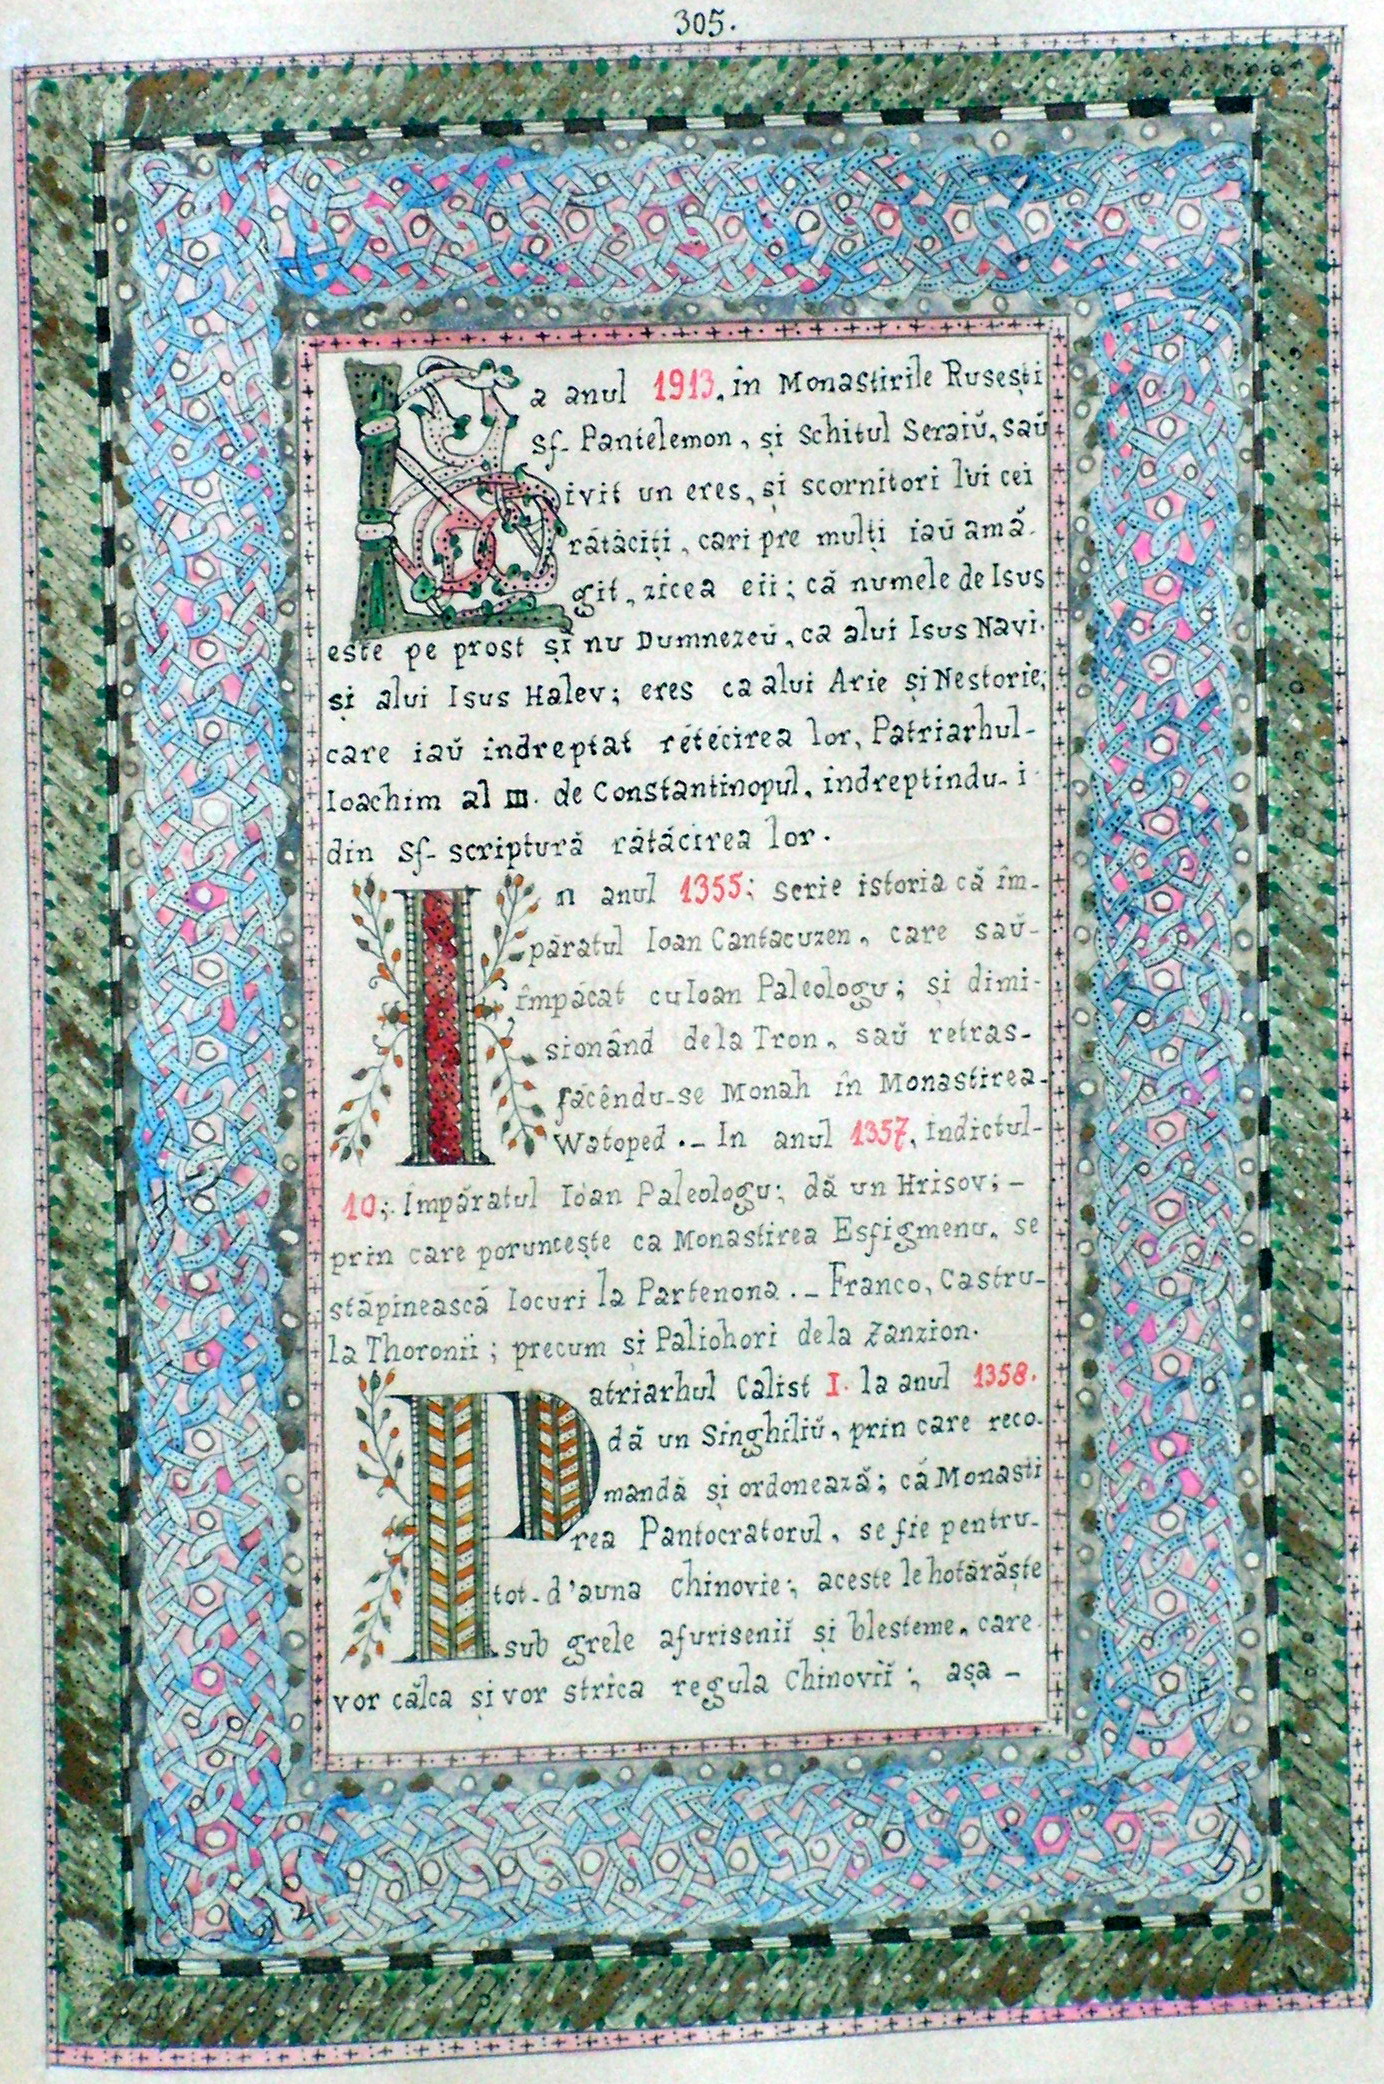 305.
La anul 1913. în Monastirile Rusești
sf- Pantelemon, și Schitul Seraiŭ, saŭ
ivit un eres, și scornitori lui cei
rătăciți, cari pre mulți iaŭ amă-
git, zicea eii; că numele de Isus
este pe prost și nu Dumnezeŭ, ca alui Isus Navi-
și alui Isus Halev; eres ca alui Arie și Nestorie;
care iaŭ indreptat retecirea lor, Patriarhul-
Ioachim al III. de Constantinopul, indreptindu-i
din sf- scriptură rătăcirea lor.
In anul 1355; scrie istoria că îm-
păratul Ioan Cantacuzen, care saŭ-
împăcat cu Ioan Paleologu; și dimi-
sionând dela Tron, saŭ retras-
făcêndu-se Monah în Monastirea-
Watoped.- In anul 1357, indictul-
10; Impăratul Ioan Paleologu; dă un Hrisov; -
prin care poruncește ca Monastirea Esfigmenu, se
stăpinească locuri la Partenona.- Franco, Castru-
la Thoronii; precum și Paliohori dela Zanzion.
Patriarhul Calist I. la anul 1358.
dă un Singhiliŭ, prin care reco-
mandă și ordonează; că Monasti
rea Pantocratorul, se fie pentru-
tot-d'auna Chinovie; aceste le hotărăște
sub grele afurisenii și blesteme, care
vor călca și vor strica regula Chinovii; așa -